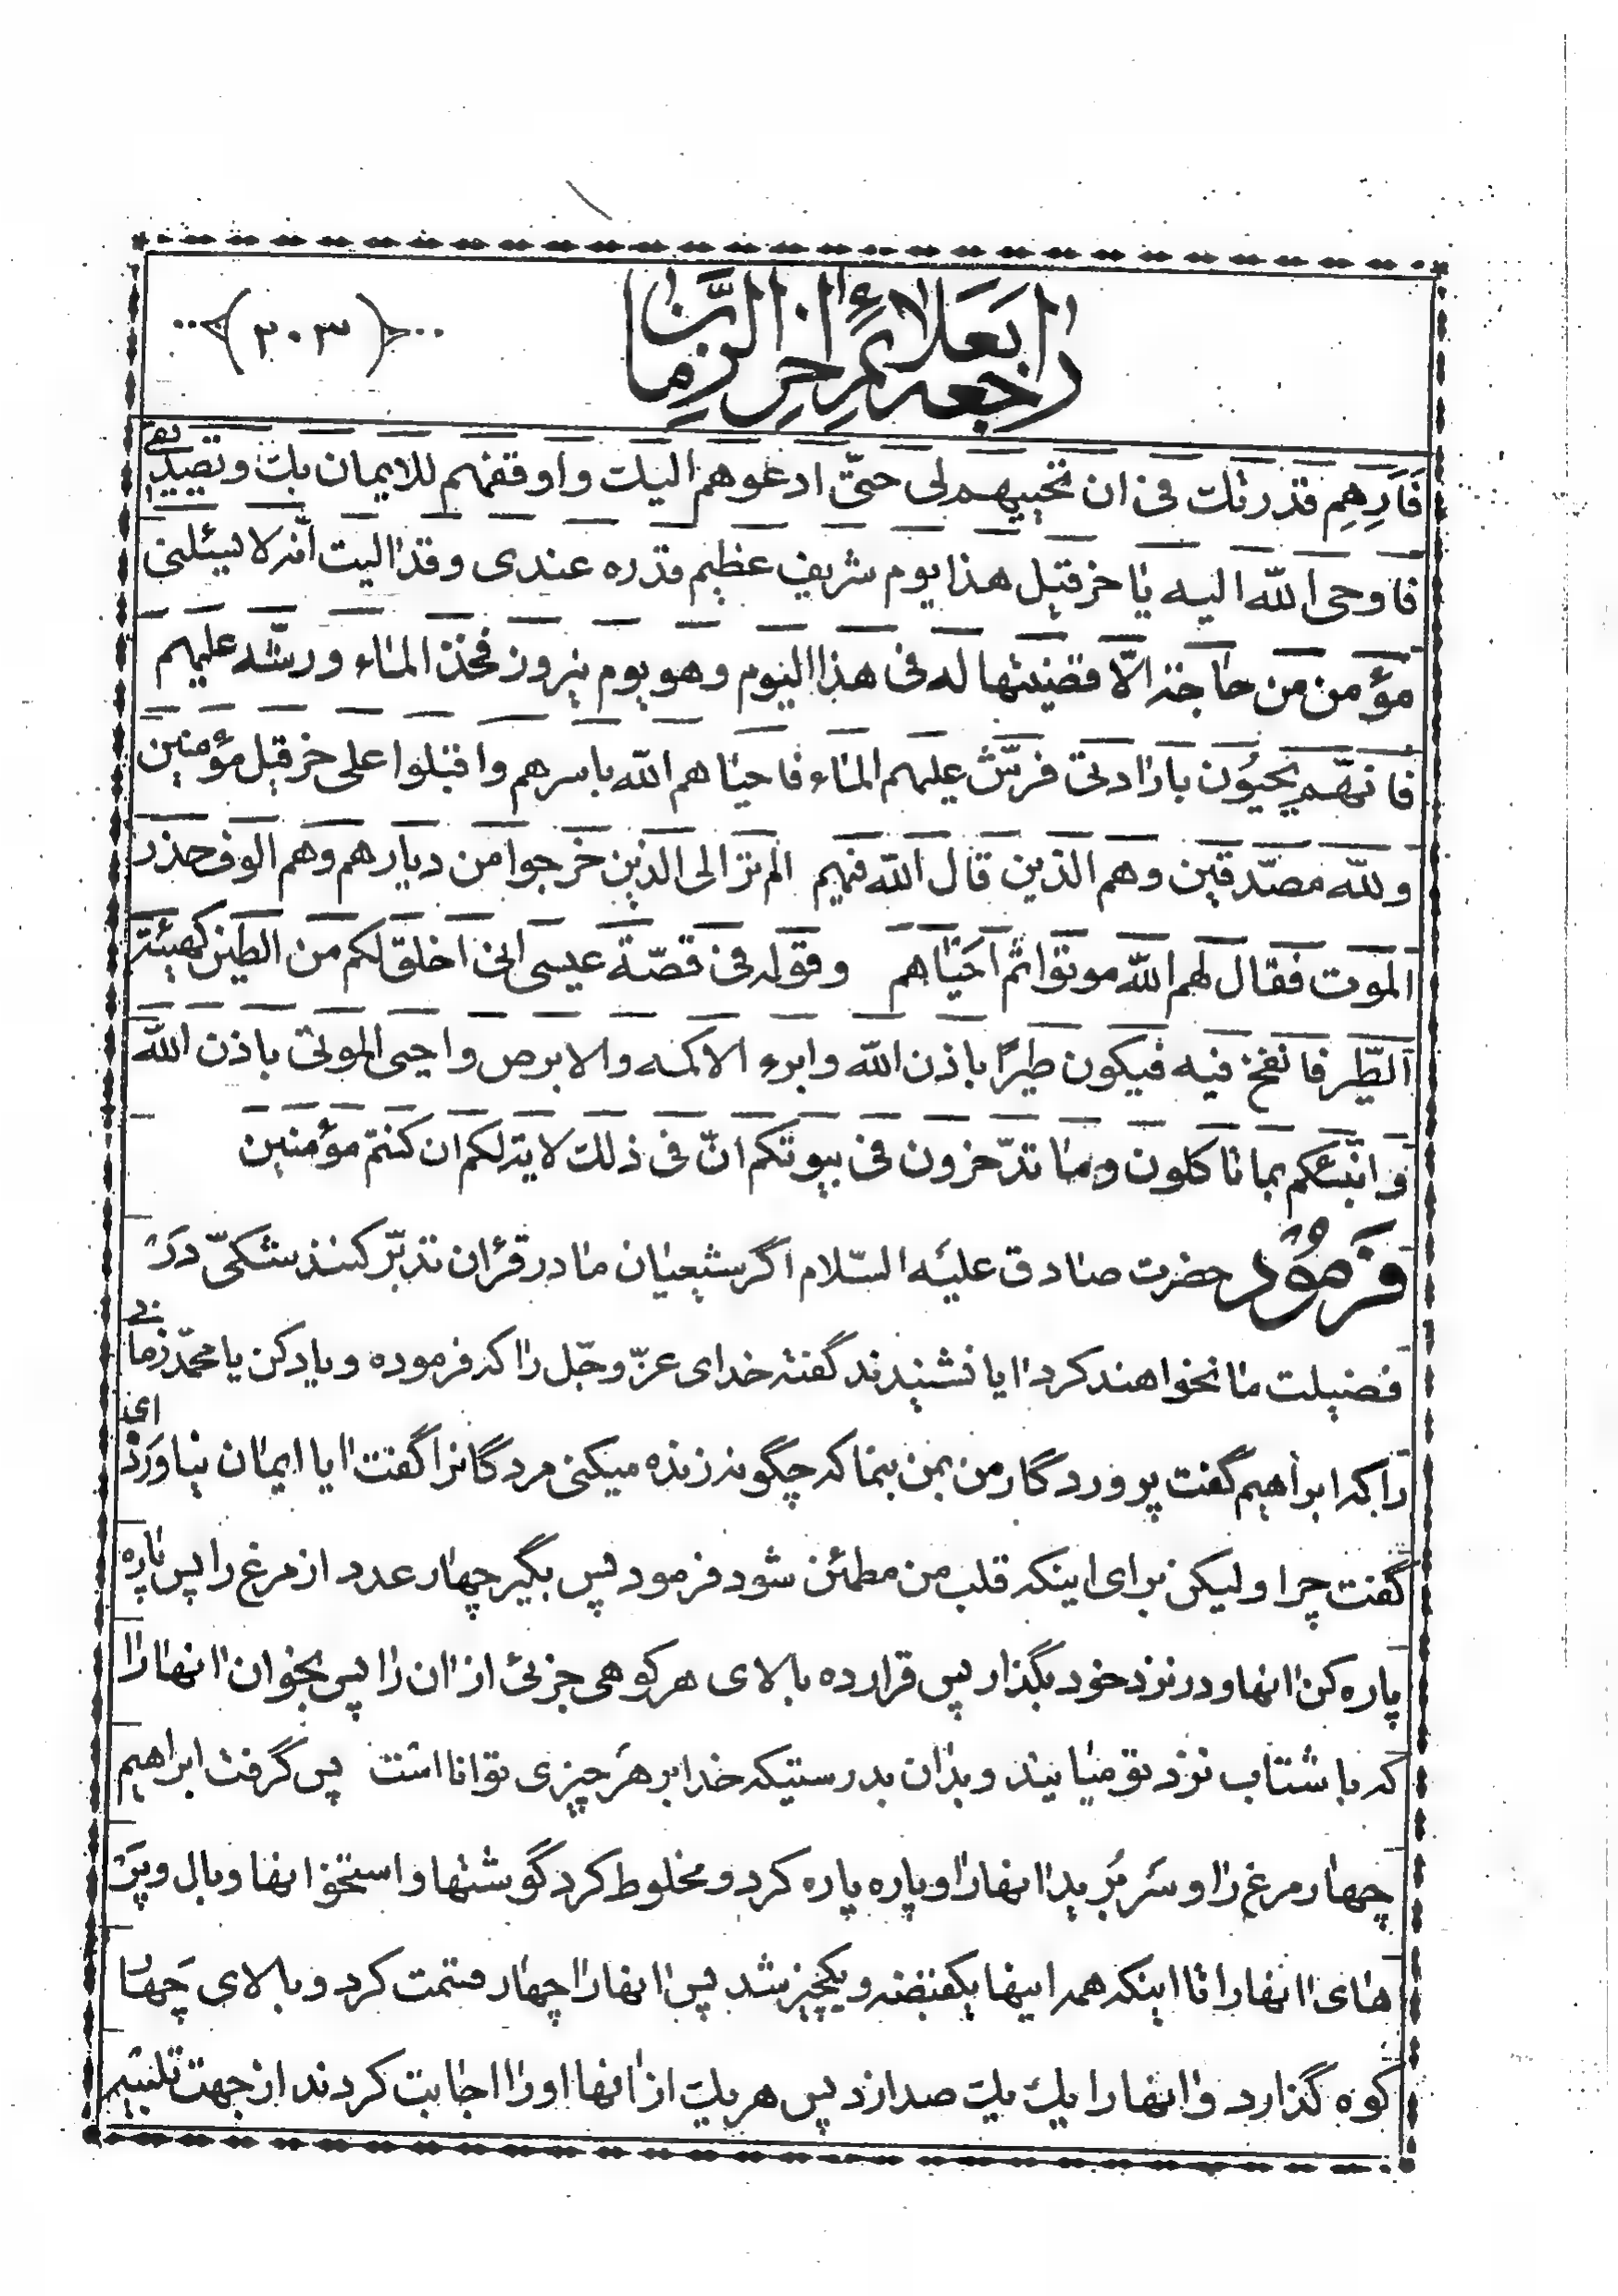 راجعه بعلائم اخر الزمان
(۲۰۳)
فَاَرِهِم قدرتك فی ان تحییهم لی حتّی ادعوهم الیك و اوقفهم للایمان بك و تصدیقی
فاوحی الله الیه یا خرقیل هذا یوم شریف عظیم قدره عندی و قد الیت انّه لا یسئلنی
مؤمن من حاجة الّا قضیتها له فی هذا الیوم و هو یوم نیروز فخذ الماء و رشّه علیهم
فانهّم یحیوُن بارادتی فرشّ علیهم الماء فاحیاهم الله باسرهم و اقبلوا علی خرقیل مؤمنین
و لله مصدّقین و هم الذین قال الله فیهم الم تر الی الذین خرجوا من دیارهم و هم الوف حذر
الموت فقال لهم الله موتوا ثم اَحیاهم و قوله فی قصّة عیسی انی اخلق لکم من الطین کهیئة
الطّیر فانفخ فیه فیکون طیرًا باذن الله و ابرء الاکمه و الابرص و احیی الموتی باذن الله
و انبّئکم بما تاکلون و ما تدّخرون فی بیوتکم انّ فی ذلك لایة لکم ان کنتم مؤمنین
فَرمُود حضرت صادق علیه السّلام اگر شیعیان ما در قرءان تدبّر کنند شکیّ دَر
فضیلت ما نخواهند کرد ایا نشنیدند گفتهٔ خدای عزّ و جّل را که فرموده و یاد کن یا محمّد زمانی
را که ابراهیم گفت پروردگار من بمن بنما که چگونه زنده میکنی مردگانرا گفت ایا ایمان نیاوَردهٔ ای
گفت چرا و لیکن برای اینکه قلب من مطمئن شود فرمود پس بگیر چهار عدد از مرغ را پس پاره
پاره کن انها و در نزد خود بگذار پس قرار ده بالای هر کوهی جزئی از ان را پس بخوان انها را
که با شتاب نزد تو میایند و بدان بدرستیکه خدا بر هَر چیزی توانا است پس گرفت ابراهیم
چهار مرغ را و سَر بُرید انها را و پاره پاره کرد و مخلوط کرد گوشتها و استخوانها و بال و پَر
های انها را تا اینکه همه اینها یکقبضه و یکچیز شد پس انها را چهار قسمت کرد و بالای چَهار
کوه گذارد و انها را یك یك صدا زد پس هر یك از انها او را اجابت کردند از جهت تلبیهم